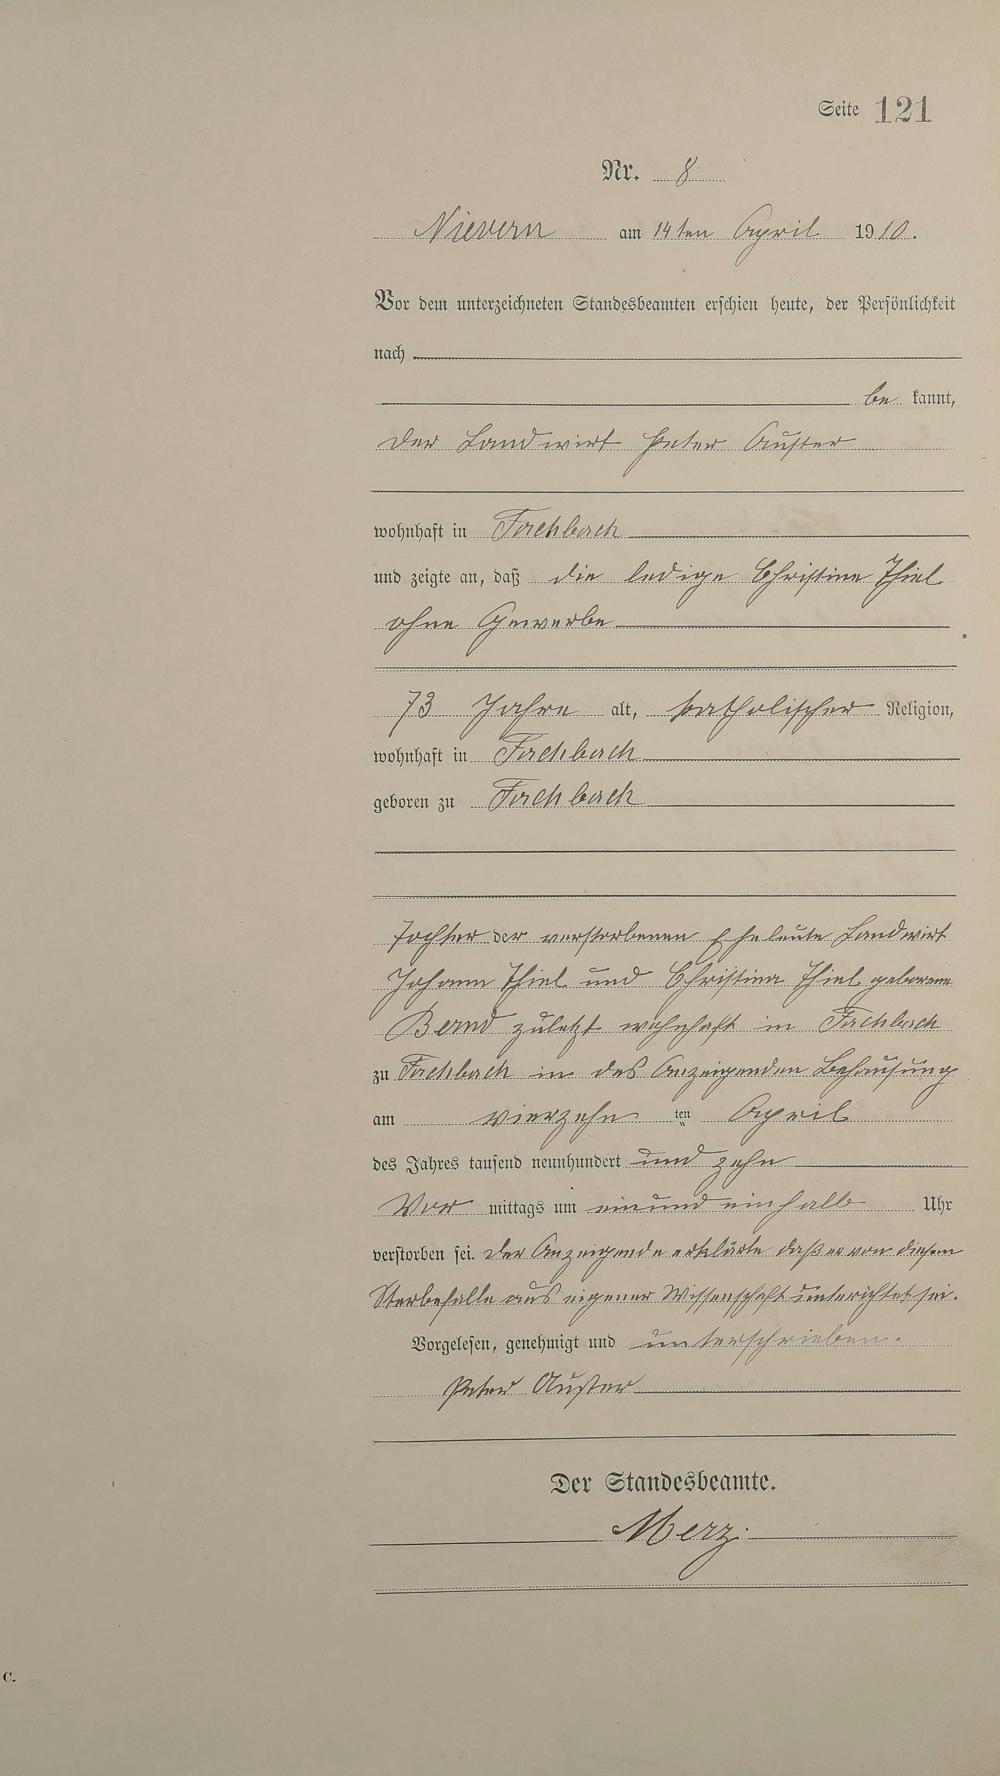 Seite 121
Nr. 8
Nievern am 14ten April 1910.
Vor dem unterzeichneten Standesbeamten erschien heute, der Persönlichkeit
nach
be kannt,
der Landwirt Peter Auster
wohnhaft in Fachbach
und zeigte an, daß die ledige Christine Thiel
ohne Gewerbe
73 Jahre alt, katholischer Religion,
wohnhaft in Fachbach
geboren zu Fachbach
Tochter der verstorbenen Eheleute Landwirt
Johann Thiel und Christina Thiel geborene
Bernd zuletzt wohnhaft in Fachbach
zu Fachbach in des Anzeigenden Behausung
am vierzehn ten April
des Jahres tausend neunhundert und zehn
Vor mittags um einundeinhalb Uhr
verstorben sei. Der Anzeigende erklärte daß er von diesem
Sterbefalle aus eigener Wissenschaft unterichtet sei.
Vorgelesen, genehmigt und unterschrieben.
Peter Auster
Der Standesbeamte.
Merz.
C.